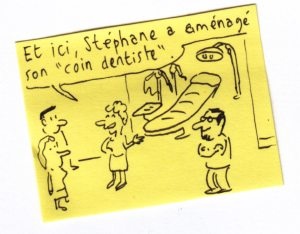 Et ici, Stéphane a aménagé
son "coin dentiste"